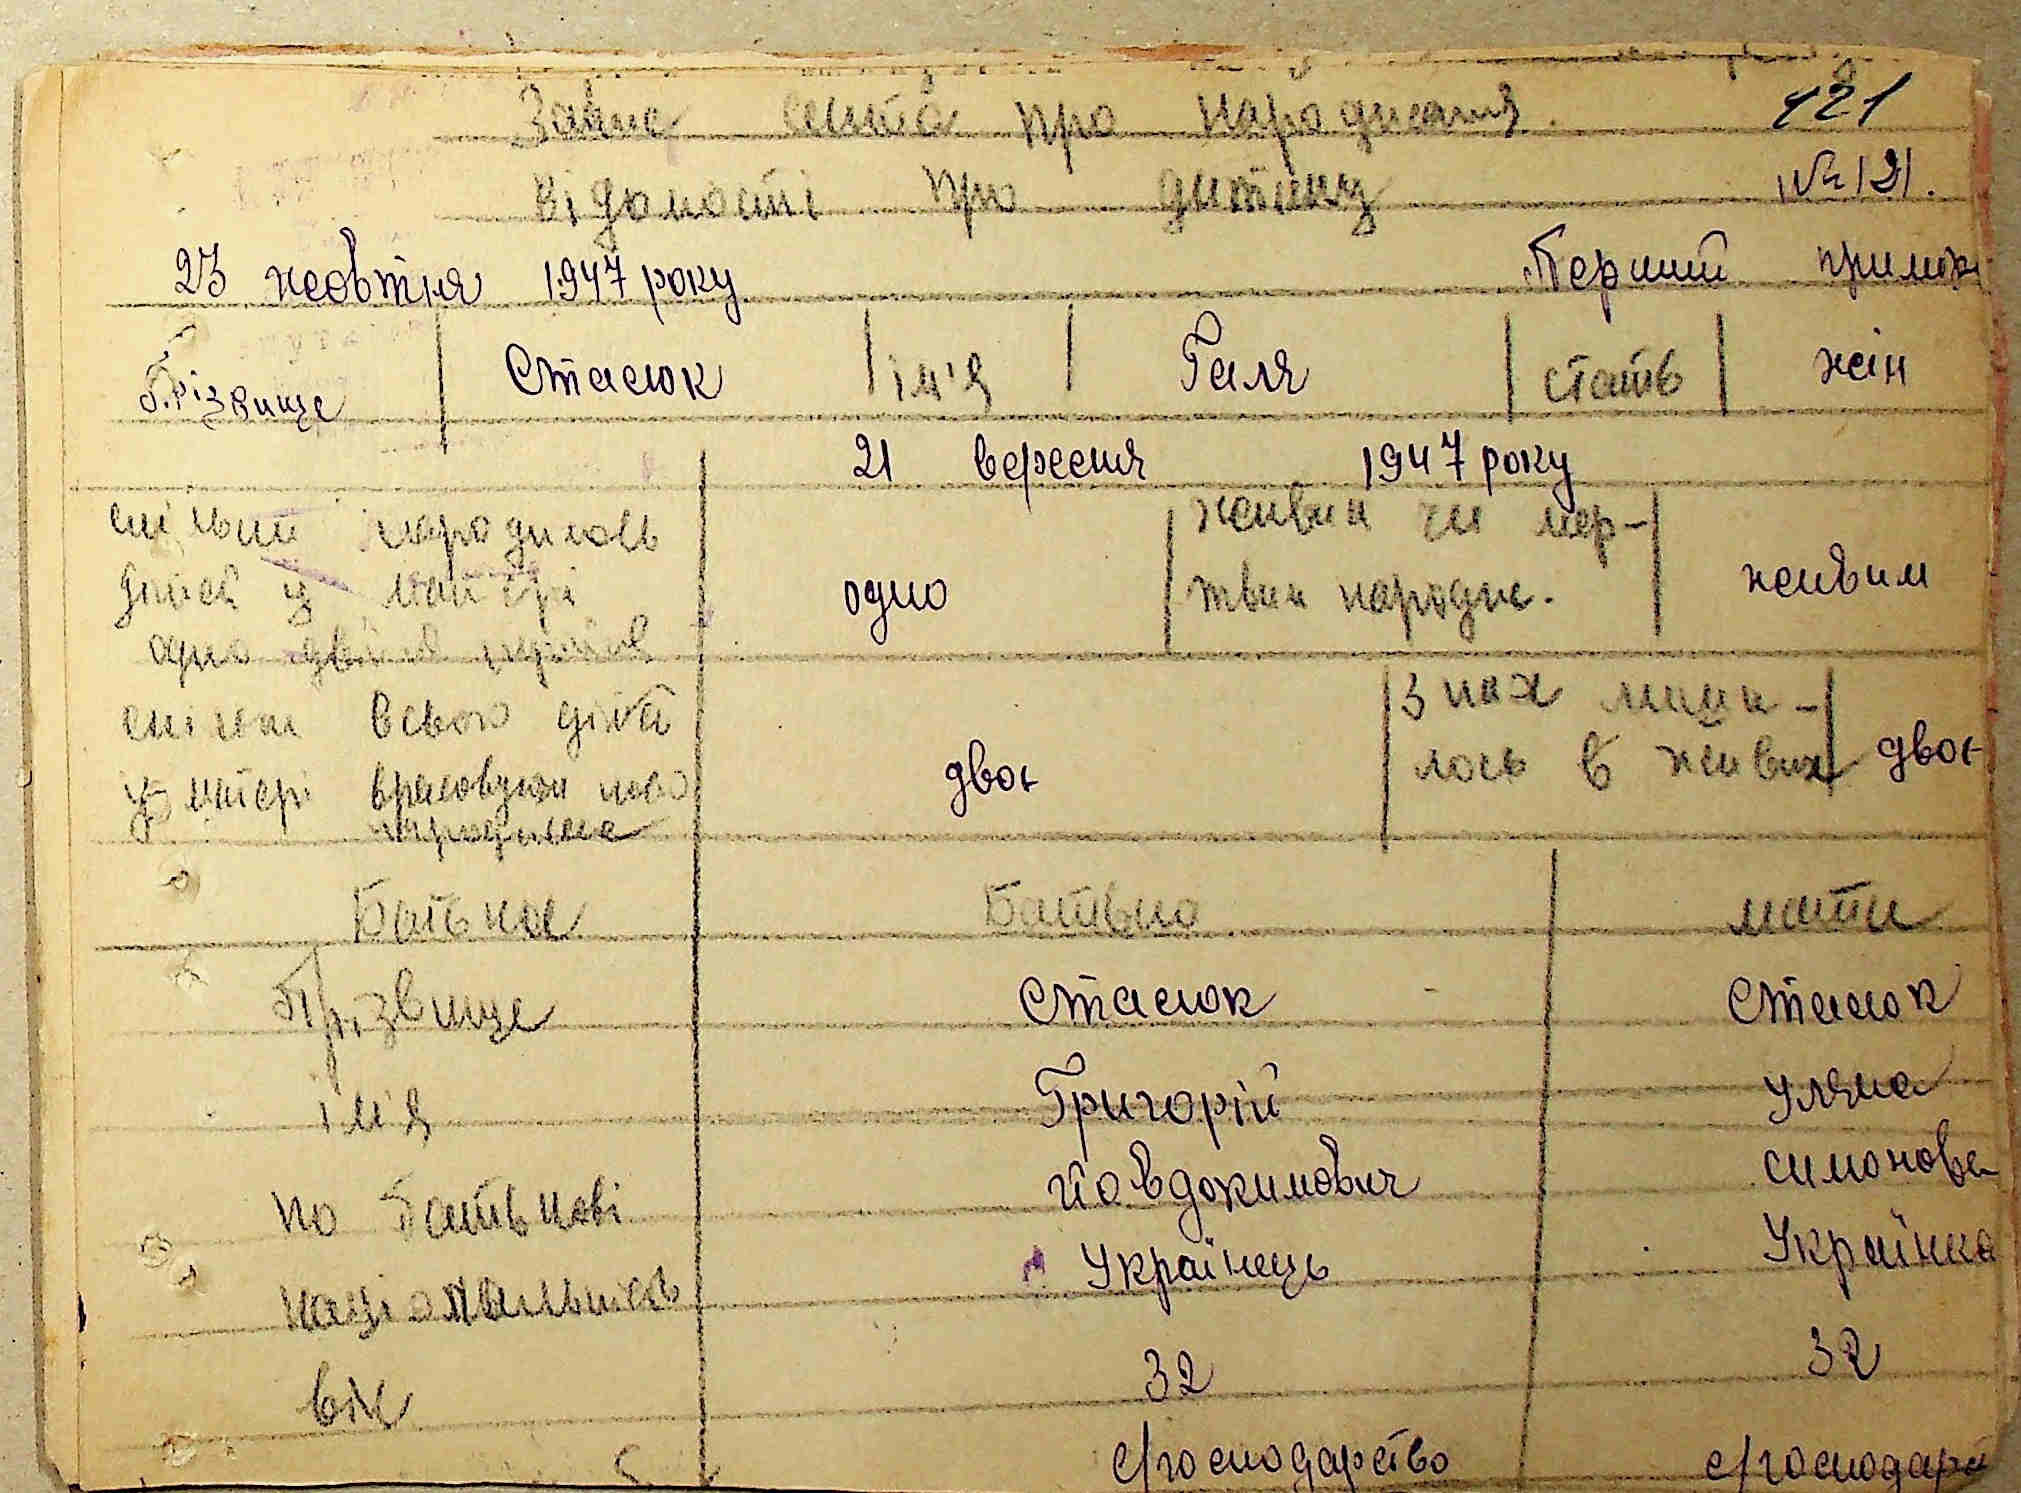 Запис акта про народження 121
Відомості про дитину №121.
23 жовтня 1947 року Перший примір
Прізвище Стасюк ім'я Галя стать жін
21 вересня 1947 року
скільки народилось одно живим чи мер-
дітей у матері твим народж. живим
одно двійня трійня
скільки всього дітей двоє З них лиши-
у матері враховуючи ново лось в живих двоє
народжене
Батьки Батько мати
Прізвище Стасюк Стасюк
ім'я Григорій Уляна
по батькові Йовдокимович Симонова
національність Українець Українка
вік 32 32
с/господарство с/господарст